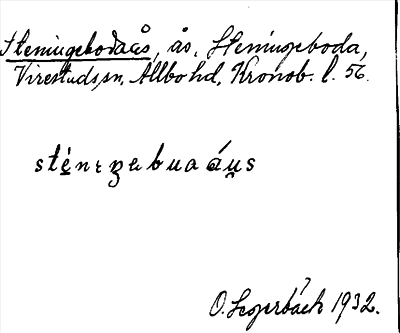 Steningebodaås, ås, Steningeboda,
Virestads sn, Allbo hd, Kronob. l. 56.
sténɩʒɐbuaáu̯s
1932.